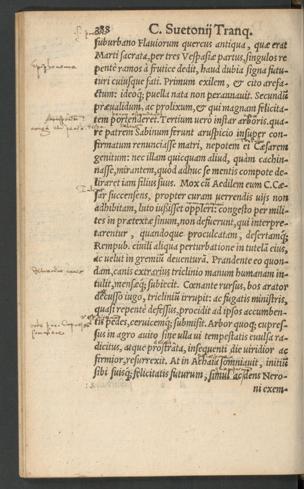 288 C. Suetonij Tranq.
suburbano Flauiorum quercus antiqua, quæ erat
Marti sacrata, per tres Vespasiæ partus, singulos re
pentè ramos à frutice dedit, haud dubia signa futu-
turi cuiusque fati. Primum exilem, & cito arefa-
ctum: ideoq; puella nata non perannauit. Secundū
præualidum, ac prolixum, & qui magnam felicita-
tem portenderet. Tertium uerò instar arboris. qua-
re patrem Sabinum ferunt aruspicio insuper con-
firmatum renunciasse matri, nepotem ei Cæsarem
genitum: nec illam quicquam aliud, quàm cachin-
nasse, mirantem, quòd adhuc se mentis compote de-
liraret iam filius suus. Mox cū Aedilem eum C. Cæ-
sar succensens, propter curam uerrendis uijs non
adhibitam, luto iußisset oppleri: congesto per mili-
tes in prætextæ sinum, non defuerunt, qui interpre-
tarentur, quandoque proculcatam, desertamq;
Rempub. ciuili aliqua perturbatione in tutelā eius,
ac uelut in gremiū deuenturā. Prandente eo quon-
dam, canis extrarius triclinio manum humanam in-
tulit, mensæq; subiecit. Cœnante rursus, bos arator
decusso iugo, triclinium irrupit: ac fugatis ministris,
quasi repentè defessus, procidit ad ipsos accumben-
tis pedes, ceruicemq; submisit. Arbor quoq; cupres-
sus in agro auito sine ulla ui tempestatis euulsa ra-
dicitus, atque prostrata, insequenti die uiridior ac
firmior, resurrexit. At in Achaia somniauit, initiū
sibi suisq; felicitatis futurum, simul ac dens Nero-
ni exem-